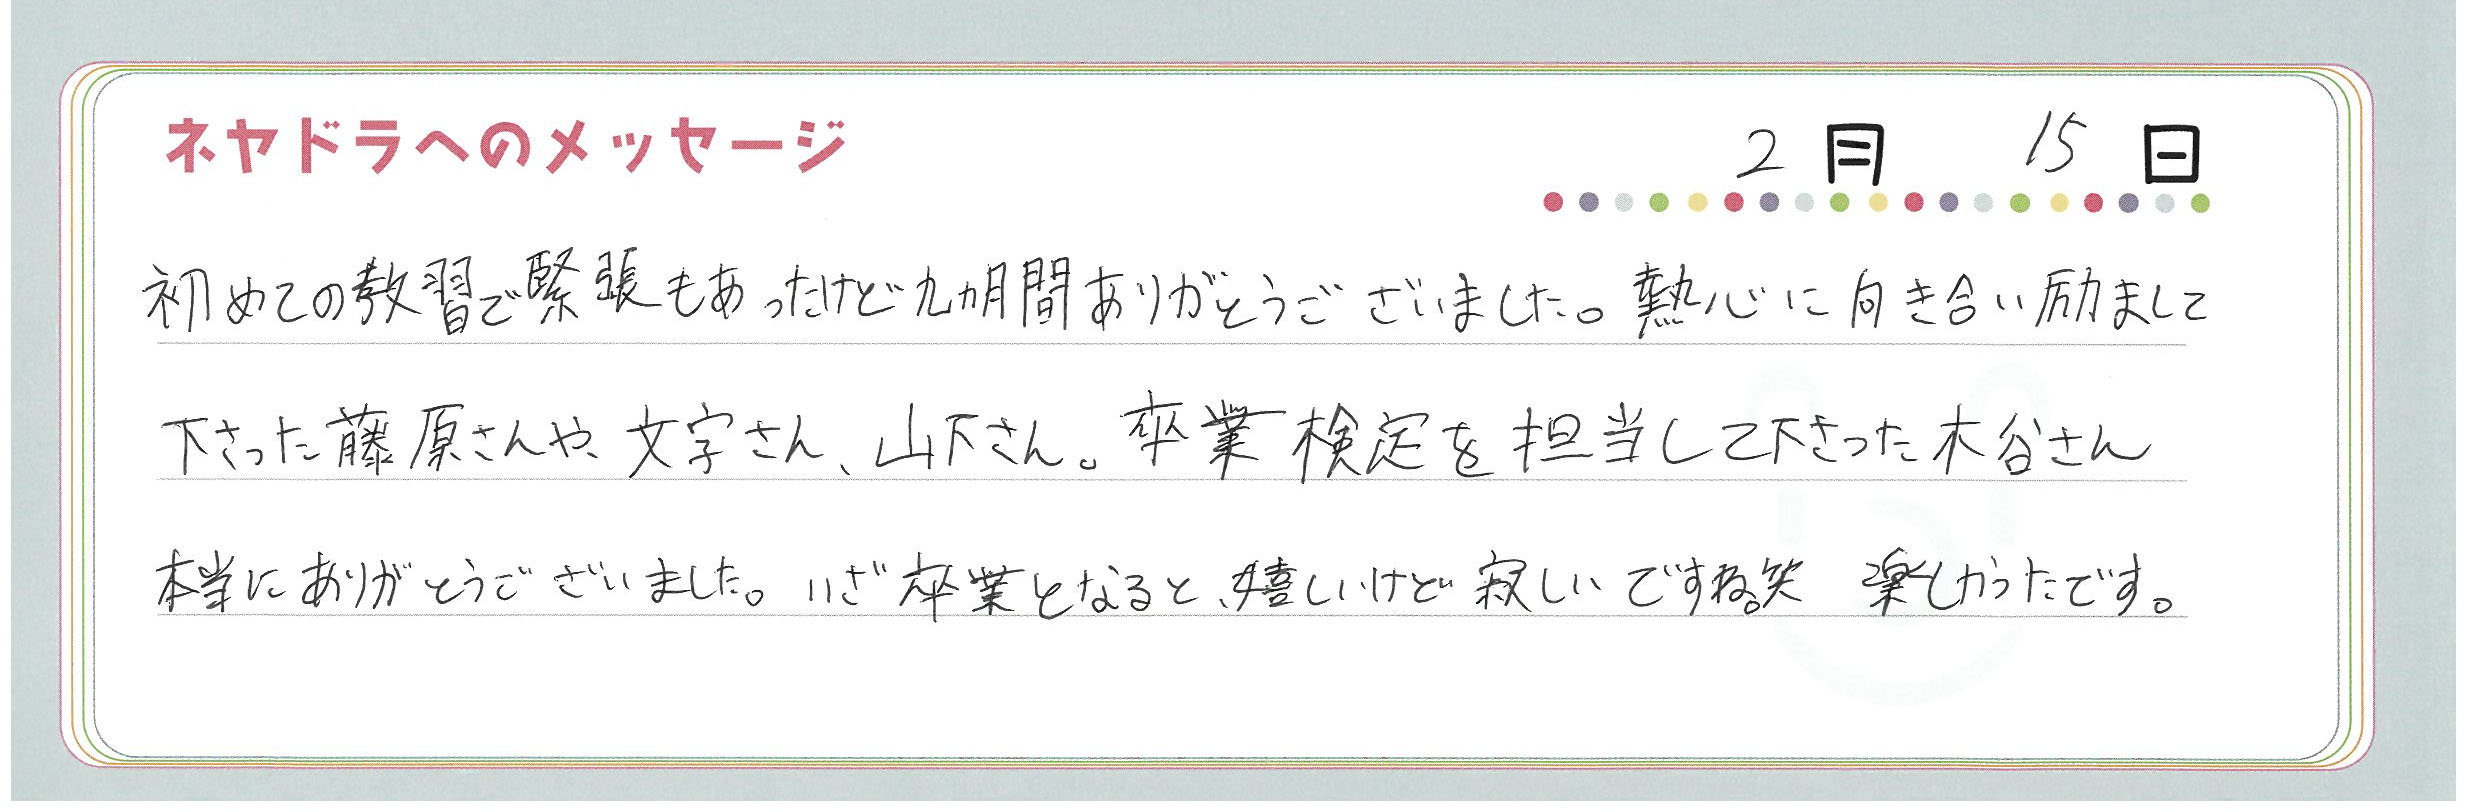 ネヤドラへのメッセージ 2月 15日
初めての教習で緊張もあったけど九ヵ月間ありがとうございました。熱心に向き合い励まして
下さった藤原さんや、文字さん、山下さん。卒業検定を担当して下さった木谷さん
本当にありがとうございました。いざ卒業となると、嬉しいけど寂しいですね。笑 楽しかったです。